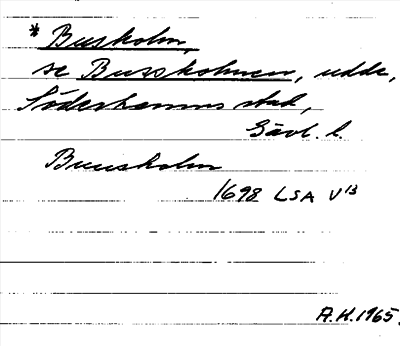 * Busholm,
se Bussholmen, udde,
Söderhamns stad,
Gävl. l.
Buusholm
1698 LSA V 13
A.H. 1965.